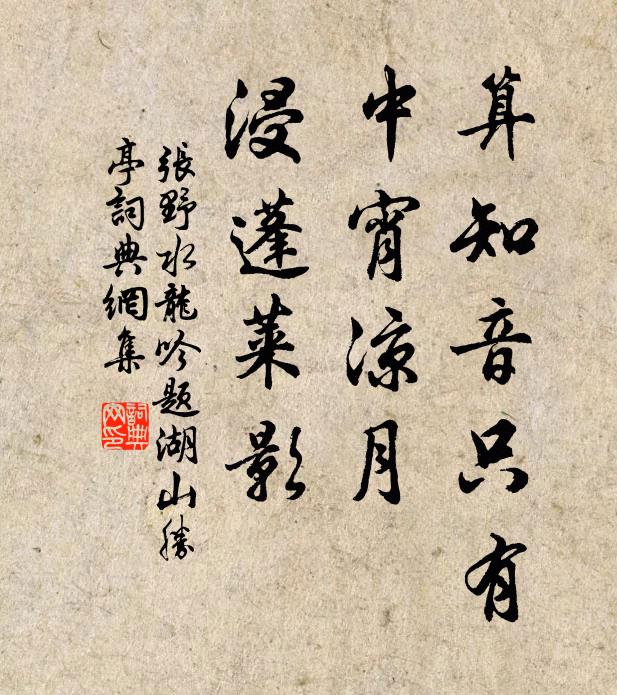 算知音只有
中宵凉月
浸蓬莱影
張野水龍吟题湖山勝
亭詞典網集
詞典网印